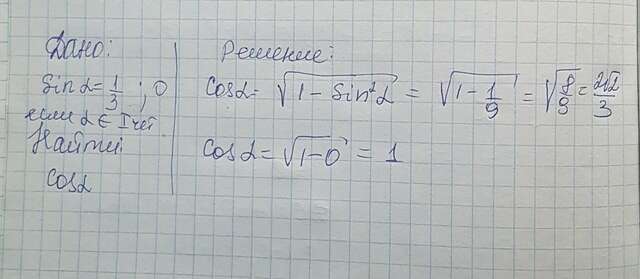 Дано:
Sin α = 1/3 ; 0
если α ∈ I чет
Найти:
cos α
Решение:
Cos α = √(1 - Sin²α) = √(1 - 1/9) = √(8/9) = 2√2/3
Cos α = √(1-0) = 1